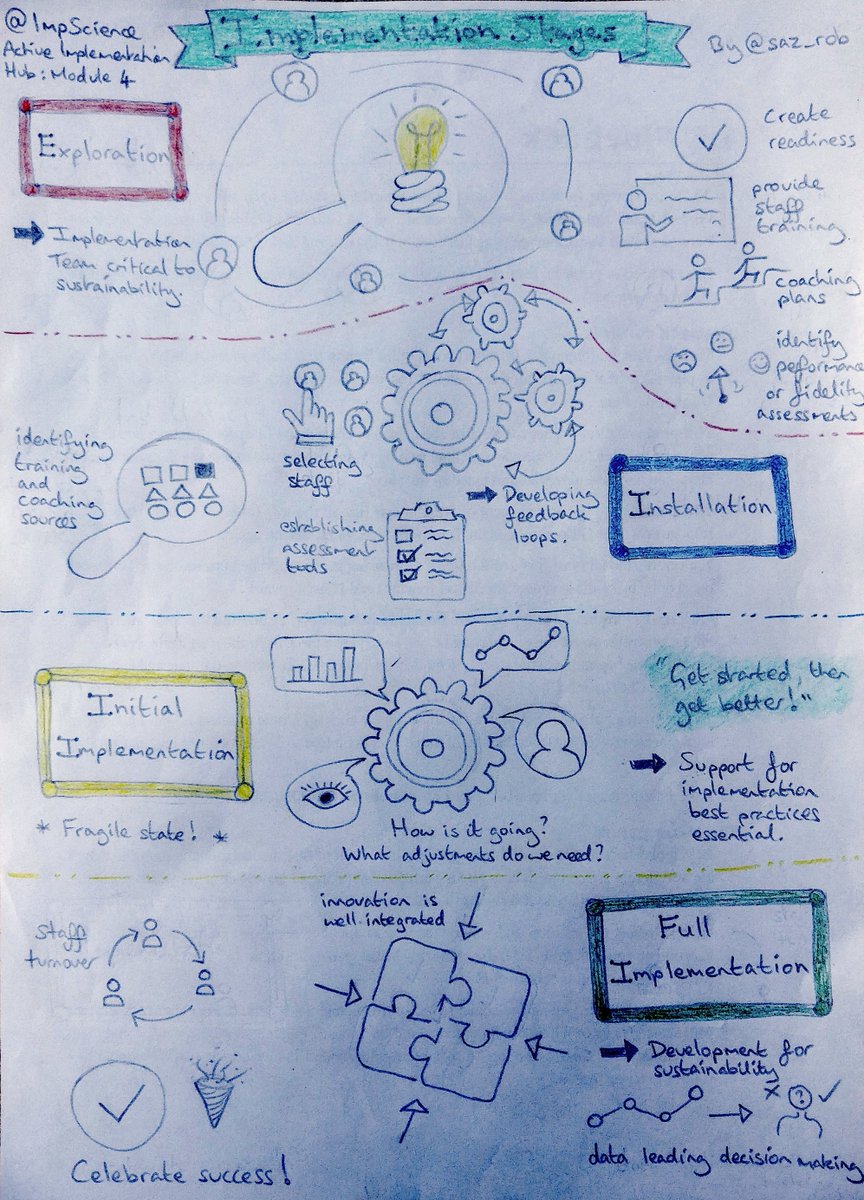 @ImpScience
Active Implementation
Hub: Module 4
Implementation Stages
By @saz_rob
Exploration
Implementation
Team critical to
sustainability.
Create
readiness
provide
staff
training.
coaching
plans
identify
peformance
or fidelity
assessments
identifying
training
and
coaching
sources
selecting
staff
establishing
assessment
tools
Developing
feedback
loops.
Installation
Initial
Implementation
* Fragile state! *
How is it going?
What adjustments do we need?
"Get started, then
get better!"
Support for
implementation
best practices
essential.
staff
turnover
innovation is
well integrated
Full
Implementation
Development for
sustainability
?
data leading decision making
Celebrate success!